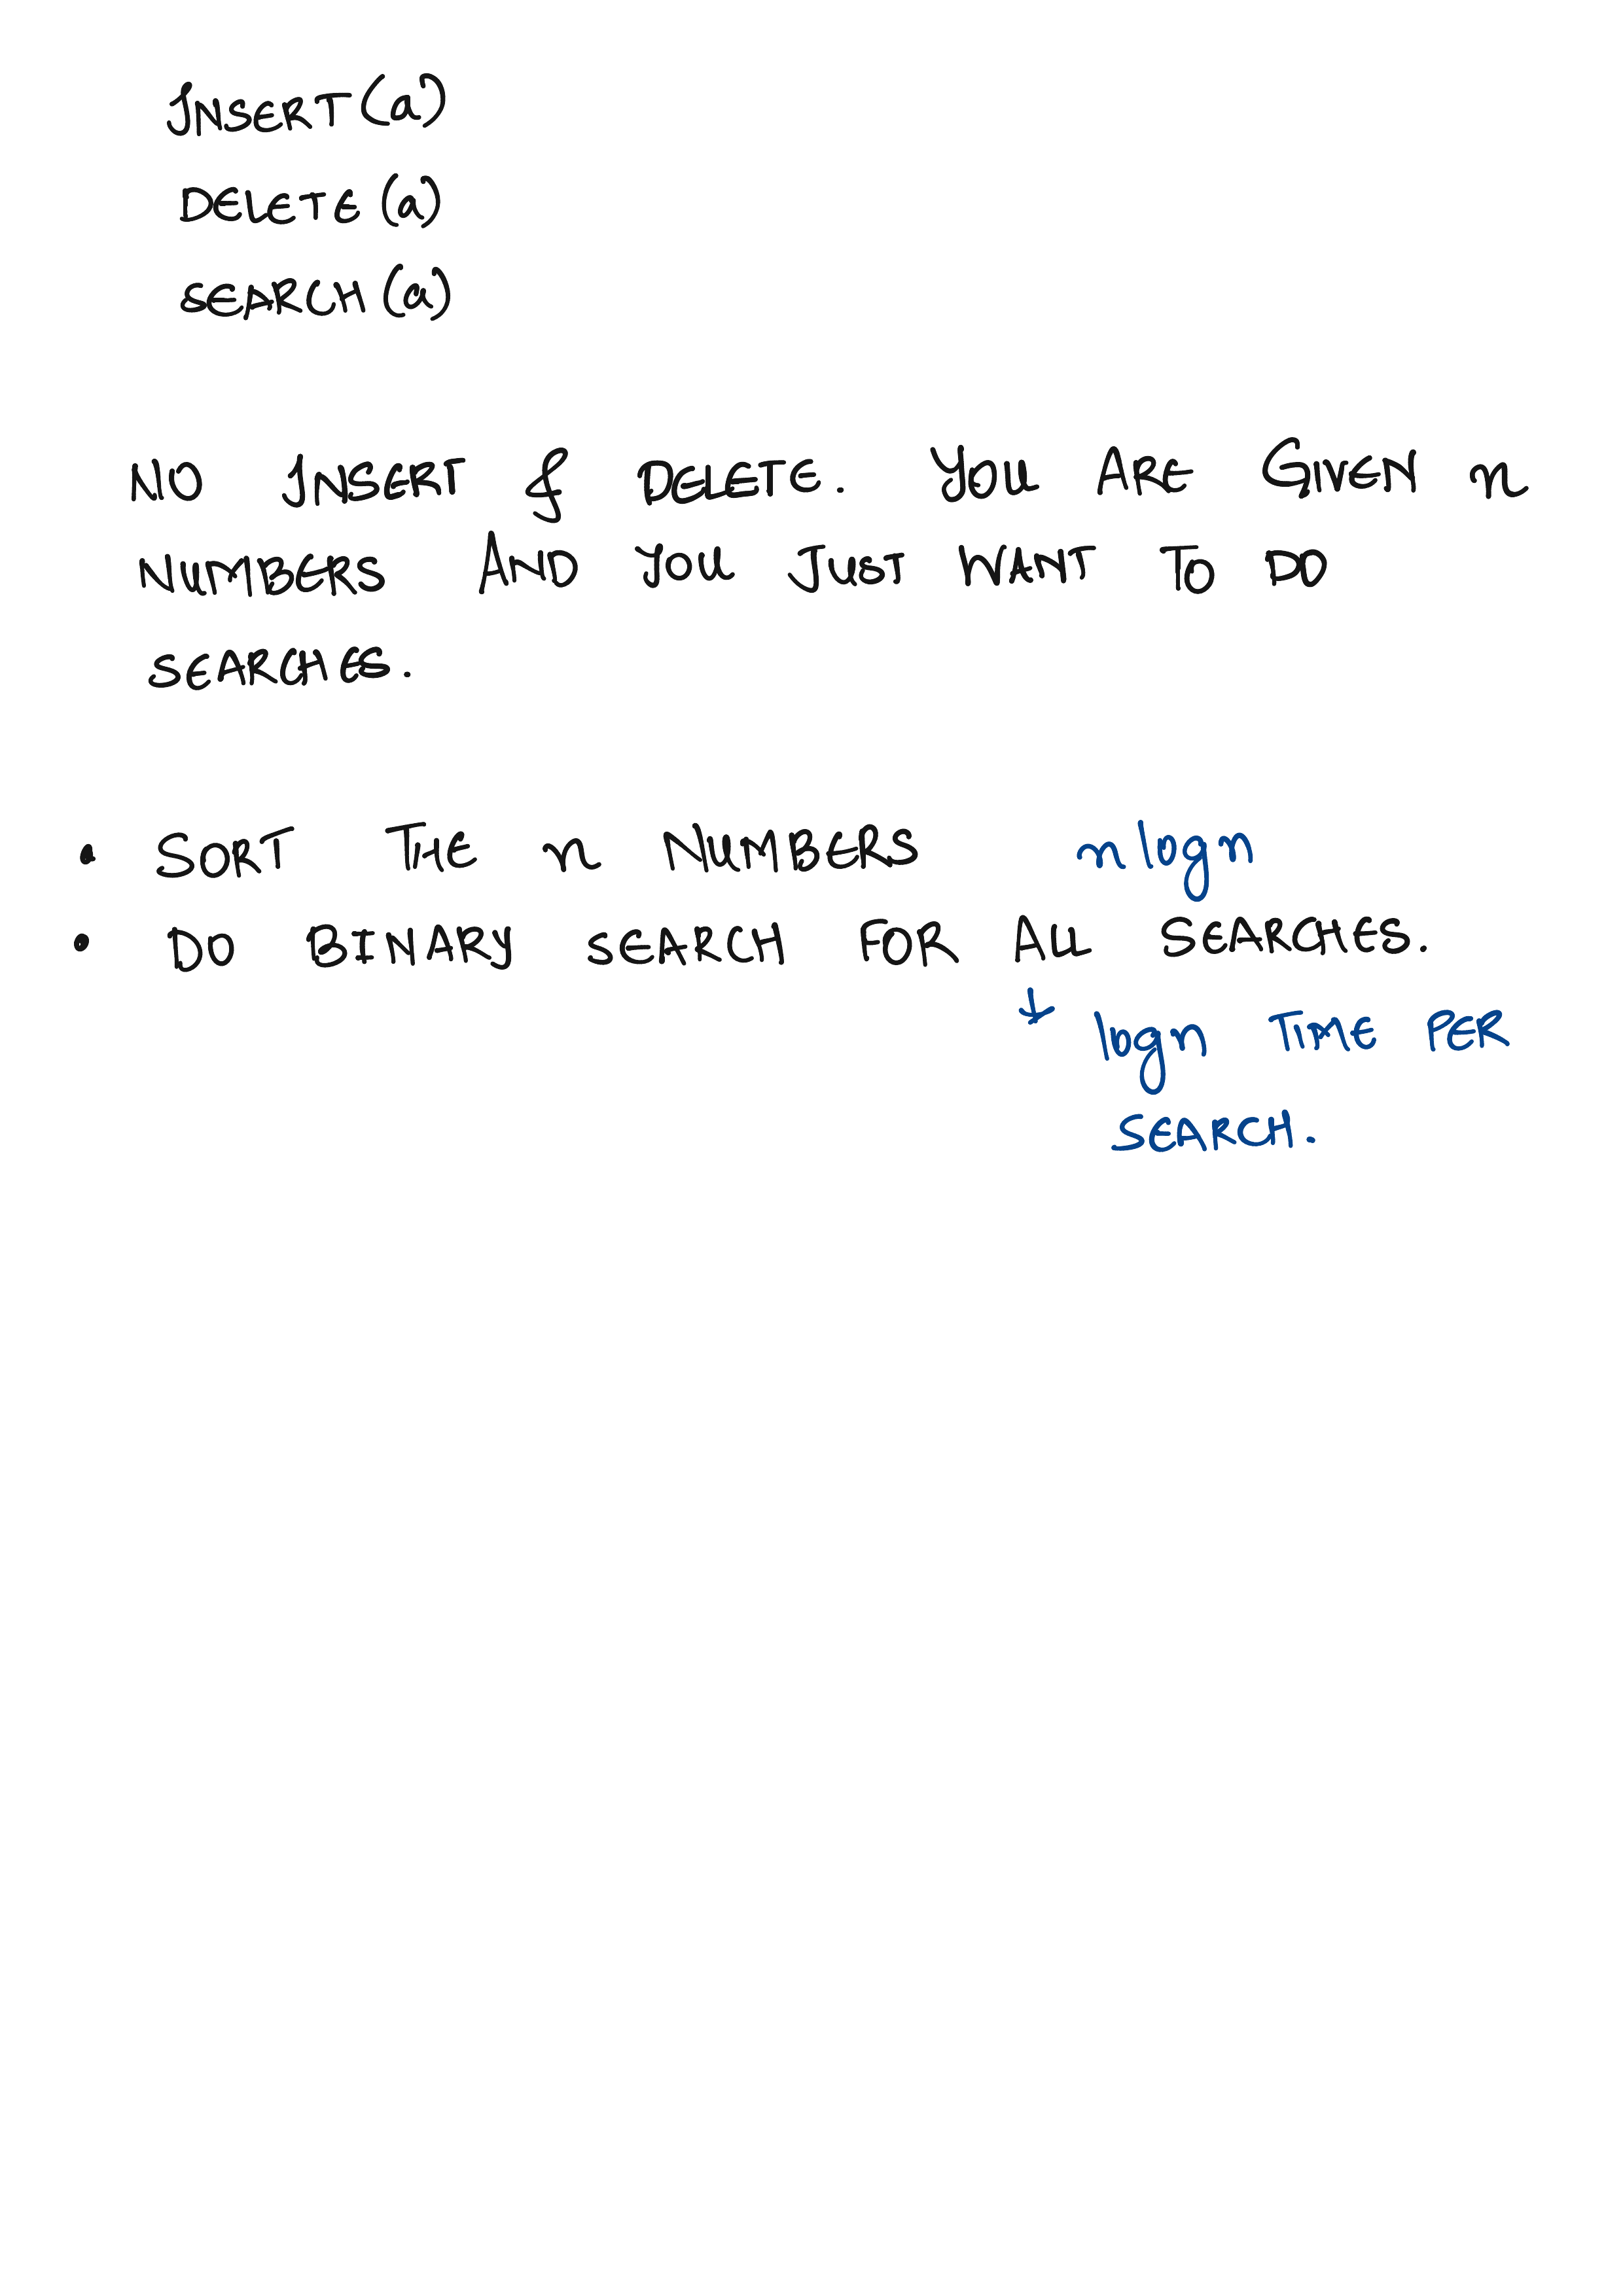 INSERT (a)
DELETE (a)
SEARCH (a)
NO INSERT & DELETE. YOU ARE GIVEN n
NUMBERS AND YOU JUST WANT TO DO
SEARCHES.
• SORT THE n NUMBERS n log n
• DO BINARY SEARCH FOR ALL SEARCHES.
↓ log n TIME PER
SEARCH.